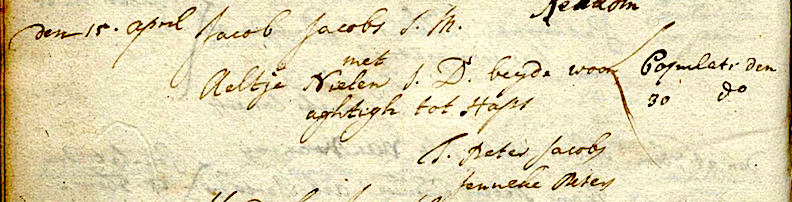 den 15. april Jacob Jacobs J. M.
met
Aeltje Nielen J. D. beyde woon
aghtigh tot Haps
Copulati den
30 do
T. Peter Jacobs
Jenneke Peters